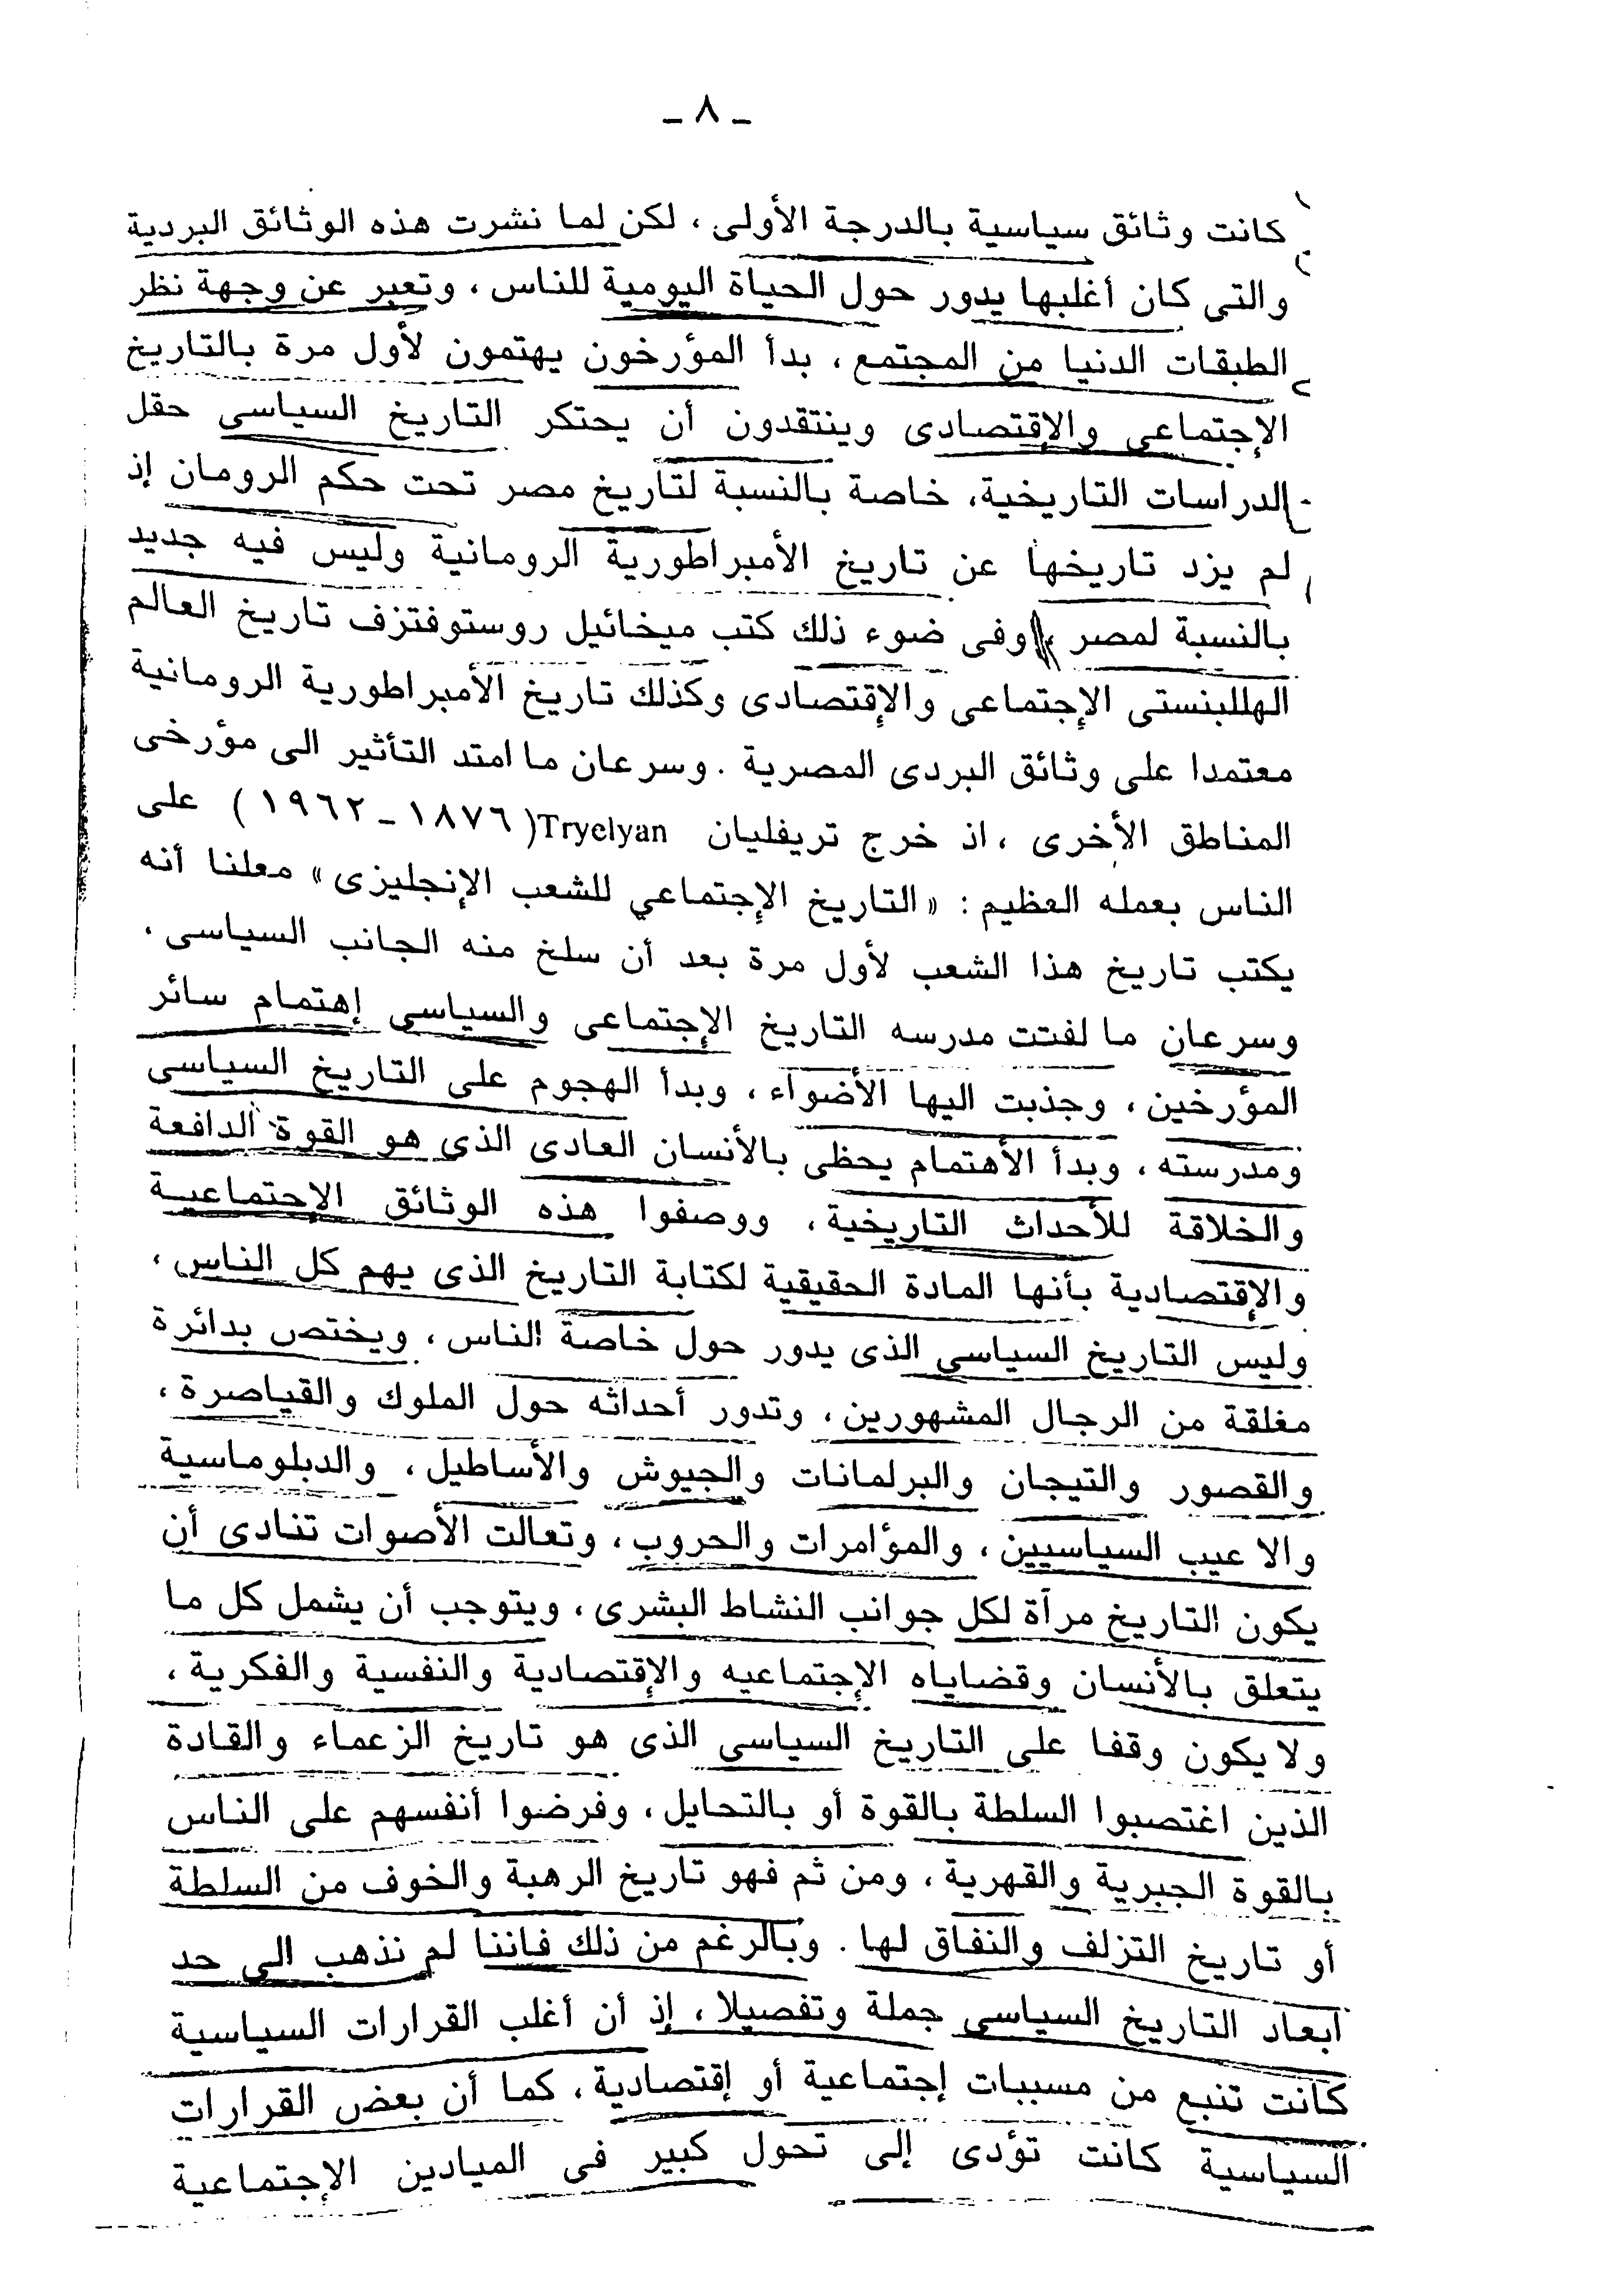 ـ ٨ ـ
كانت وثائق سياسية بالدرجة الأولى ، لكن لما نشرت هذه الوثائق البردية
والتى كان أغلبها يدور حول الحياة اليومية للناس ، وتعبر عن وجهة نظر
الطبقات الدنيا من المجتمع ، بدأ المؤرخون يهتمون لأول مرة بالتاريخ
الإجتماعى والإقتصادى وينتقدون أن يحتكر التاريخ السياسى حقل
الدراسات التاريخية، خاصة بالنسبة لتاريخ مصر تحت حكم الرومان إذ
لم يزد تاريخها عن تاريخ الأمبراطورية الرومانية وليس فيه جديد
بالنسبة لمصر ، وفى ضوء ذلك كتب ميخائيل روستوفتزف تاريخ العالم
الهللبنستى الإجتماعى والإقتصادى وكذلك تاريخ الأمبراطورية الرومانية
معتمدا على وثائق البردى المصرية . وسرعان ما امتد التأثير الى مؤرخى
المناطق الأخرى ، اذ خرج تريفليان Tryelyan (١٨٧٦ ـ ١٩٦٢) على
الناس بعمله العظيم : « التاريخ الإجتماعي للشعب الإنجليزى » معلنا أنه
يكتب تاريخ هذا الشعب لأول مرة بعد أن سلخ منه الجانب السياسى ،
وسرعان ما لفتت مدرسه التاريخ الإجتماعى والسياسي إهتمام سائر
المؤرخين ، وجذبت اليها الأضواء ، وبدأ الهجوم على التاريخ السياسى
ومدرسته ، وبدأ الأهتمام يحظى بالأنسان العادى الذى هو القوة الدافعة
والخلاقة للأحداث التاريخية ، ووصفوا هذه الوثائق الإجتماعية
والإقتصادية بأنها المادة الحقيقية لكتابة التاريخ الذى يهم كل الناس ،
وليس التاريخ السياسي الذى يدور حول خاصة الناس ، ويختص بدائرة
مغلقة من الرجال المشهورين ، وتدور أحداثه حول الملوك والقياصرة ،
والقصور والتيجان والبرلمانات والجيوش والأساطيل ، والدبلوماسية
والا عيب السياسيين ، والمؤامرات والحروب ، وتعالت الأصوات تنادى أن
يكون التاريخ مرآة لكل جوانب النشاط البشرى ، ويتوجب أن يشمل كل ما
يتعلق بالأنسان وقضاياه الإجتماعيه والإقتصادية والنفسية والفكرية ،
ولا يكون وقفا على التاريخ السياسى الذى هو تاريخ الزعماء والقادة
الذين اغتصبوا السلطة بالقوة أو بالتحايل ، وفرضوا أنفسهم على الناس
بالقوة الجبرية والقهرية ، ومن ثم فهو تاريخ الرهبة والخوف من السلطة
أو تاريخ التزلف والنفاق لها . وبالرغم من ذلك فاننا لم نذهب الى حد
ابعاد التاريخ السياسى جملة وتفصيلا ، إذ أن أغلب القرارات السياسية
كانت تنبع من مسببات إجتماعية أو إقتصادية ، كما أن بعض القرارات
السياسية كانت تؤدى إلى تحول كبير فى الميادين الإجتماعية